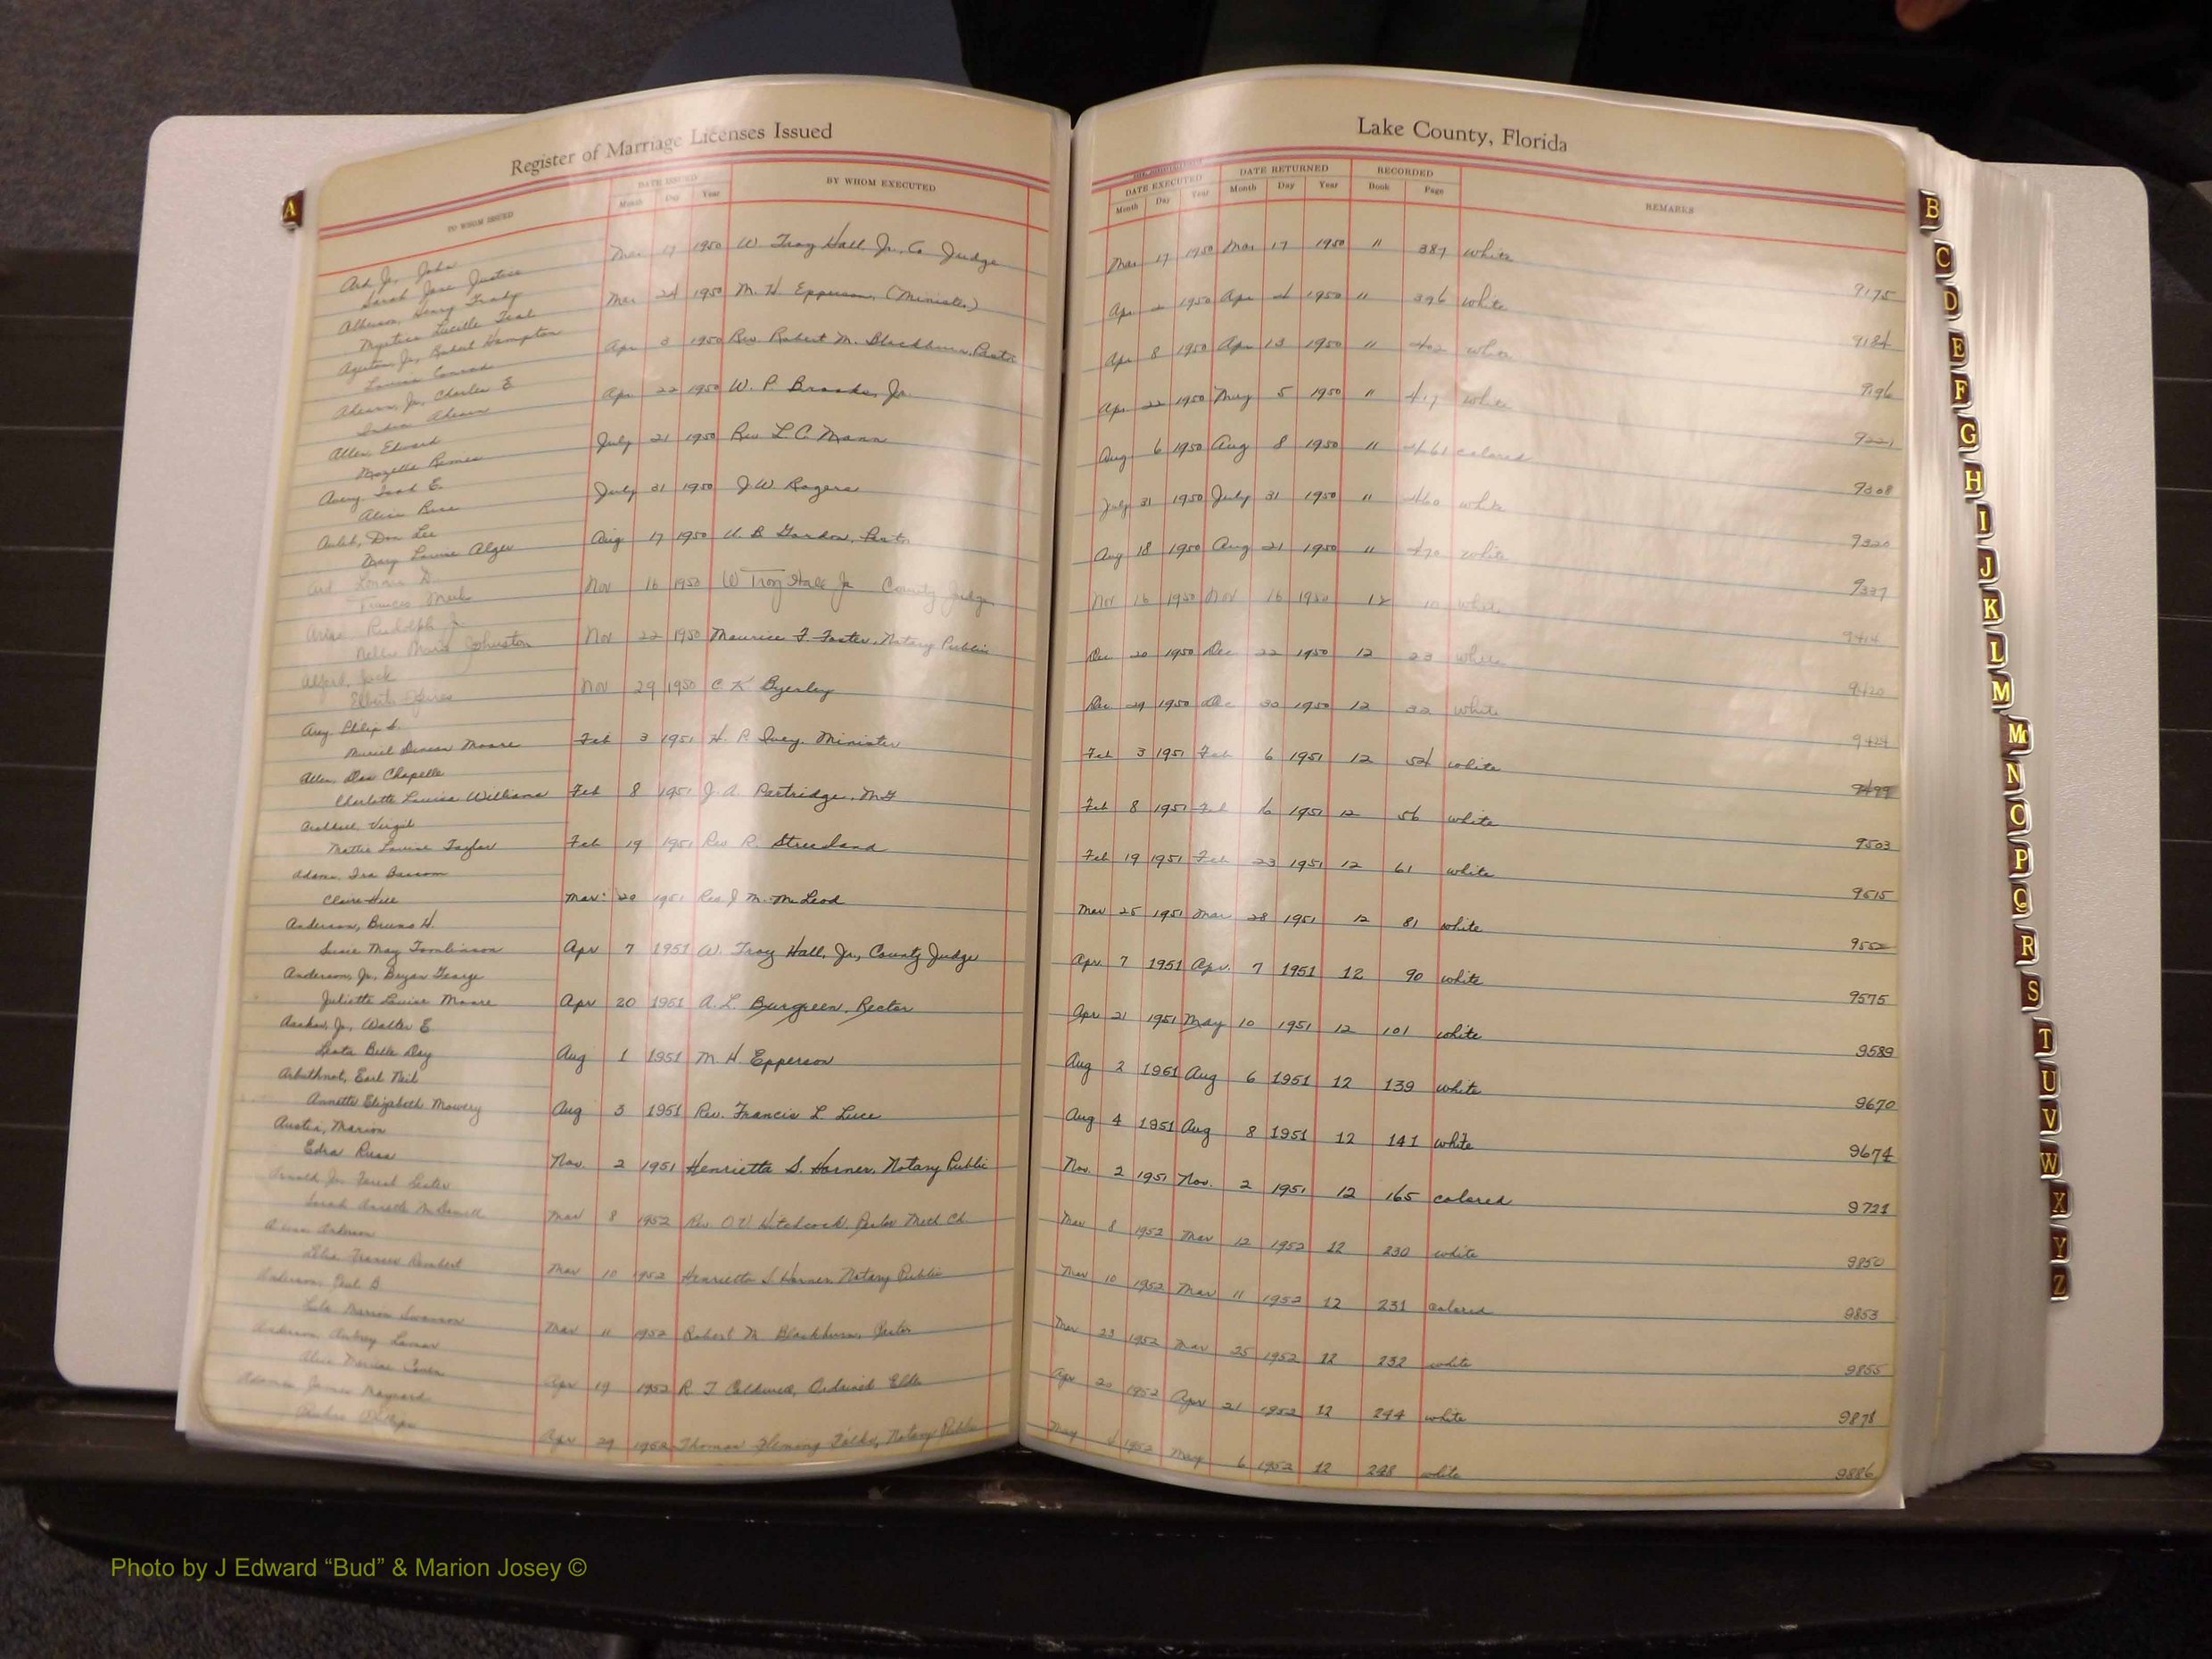 Register of Marriage Licenses Issued
Lake County, Florida
TO WHOM ISSUED
DATE ISSUED
Month Day Year
BY WHOM EXECUTED
DATE EXECUTED
Month Day Year
DATE RETURNED
Month Day Year
RECORDED
Book Page
REMARKS
A
Ard Jr, John
Sarah Jane Justice
Mar 17 1950 W Troy Hall Jr, Co Judge Mar 17 1950 Mar 17 1950 " 387 white 9175
Henry Grady
Lucille Teal
Mar 24 1950 M. H. Epperson, (Minister) Apr 2 1950 Apr 1950 " 396 white 9184
Jr, Robert Hampton
Louise Conrad
Apr 3 1950 Rev Robert M. Blackburn, Pastor Apr 8 1950 Apr 13 1950 " 402 white 9196
Ahearn, Jr, Charles E
Ahearn
Apr 22 1950 W. P. Brooks, Jr. Apr 22 1950 May 5 1950 " 417 white 9221
Allen, Edward
July 21 1950 Rev L. C. Mann Aug 6 1950 Aug 8 1950 " 461 colored 9308
Avery,
July 31 1950 J. W. Rogers July 31 1950 July 31 1950 " 460 white 9320
Don Lee
Mary Louise Alger
Aug 17 1950 U. B. Gordon, Pastor Aug 18 1950 Aug 21 1950 " 470 white 9337
Ard
Frances
Nov 16 1950 W Troy Hall Jr County Judge Nov 16 1950 Nov 16 1950 12 white 9414
Rudolph Jr
Nellie Marie Johnston
Nov 22 1950 Maurice F. Foster, Notary Public Dec 20 1950 Dec 22 1950 12 23 white 9420
Jack
Nov 29 1950 C. K Byerley Dec 29 1950 Dec 30 1950 12 32 white 9424
Arey, Philip S.
Muriel Moore
Feb 3 1951 H. P. Ivey, Minister Feb 3 1951 Feb 6 1951 12 54 white 9499
Allen, Dan Chapelle
Charlotte Louise Williams
Feb 8 1951 J. A. Partridge, M.G Feb 8 1951 Feb 1951 12 56 white 9503
Virgil
Mattie Louise Taylor
Feb 19 1951 Rev R. Feb 19 1951 Feb 23 1951 12 61 white 9515
Adams, Ira
Claire Hill
Mar 20 1951 Rev. J. M. McLeod Mar 25 1951 Mar 28 1951 12 81 white 9552
Anderson, Bruno H.
Susie May Tomlinson
Apr 7 1951 W. Troy Hall, Jr., County Judge Apr. 7 1951 Apr. 7 1951 12 90 white 9575
Anderson, Jr, Bryan George
Juliette Louise Moore
Apr 20 1951 A. L. Burgreen, Rector Apr 21 1951 May 10 1951 12 101 white 9589
Jr., Walter E.
Belle Day
Aug 1 1951 M. H Epperson Aug 2 1951 Aug 6 1951 12 139 white 9670
Arbuthnot, Earl Neil
Annette Elizabeth Mowery
Aug 3 1951 Rev. Francis L. Luce Aug 4 1951 Aug 8 1951 12 141 white 9674
Austin, Marion
Edra Russ
Nov. 2 1951 Henrietta S. Horner, Notary Public Nov. 2 1951 Nov. 2 1951 12 165 colored 9721
Arnold Jr, Forest Lester
Sarah Annette McDowell
Mar 8 1952 Rev O W Hitchcock, Pastor Meth Ch Mar 8 1952 Mar 12 1952 12 230 white 9850
Anderson
Frances Rembert
Mar 10 1952 Henrietta S Horner, Notary Public Mar 10 1952 Mar 11 1952 12 231 colored 9853
Anderson, Paul B.
Marion Swanson
Mar 11 1952 Robert M Blackburn, Pastor Mar 23 1952 Mar 25 1952 12 232 white 9855
Anderson, Aubrey Lamar
Alice Maxine
Apr 19 1952 R. T Caldwell, Ordained Elder Apr 20 1952 Apr 21 1952 12 244 white 9878
Adams, James Maynard
Phillips
Apr 29 1952 Thomas Fleming Notary Public May 1952 May 6 1952 12 248 white 9886
B
C
D
E
F
G
H
I
J
K
L
M
Mc
N
O
P
Q
R
S
T
U
V
W
X
Y
Z
Photo by J Edward “Bud” & Marion Josey ©